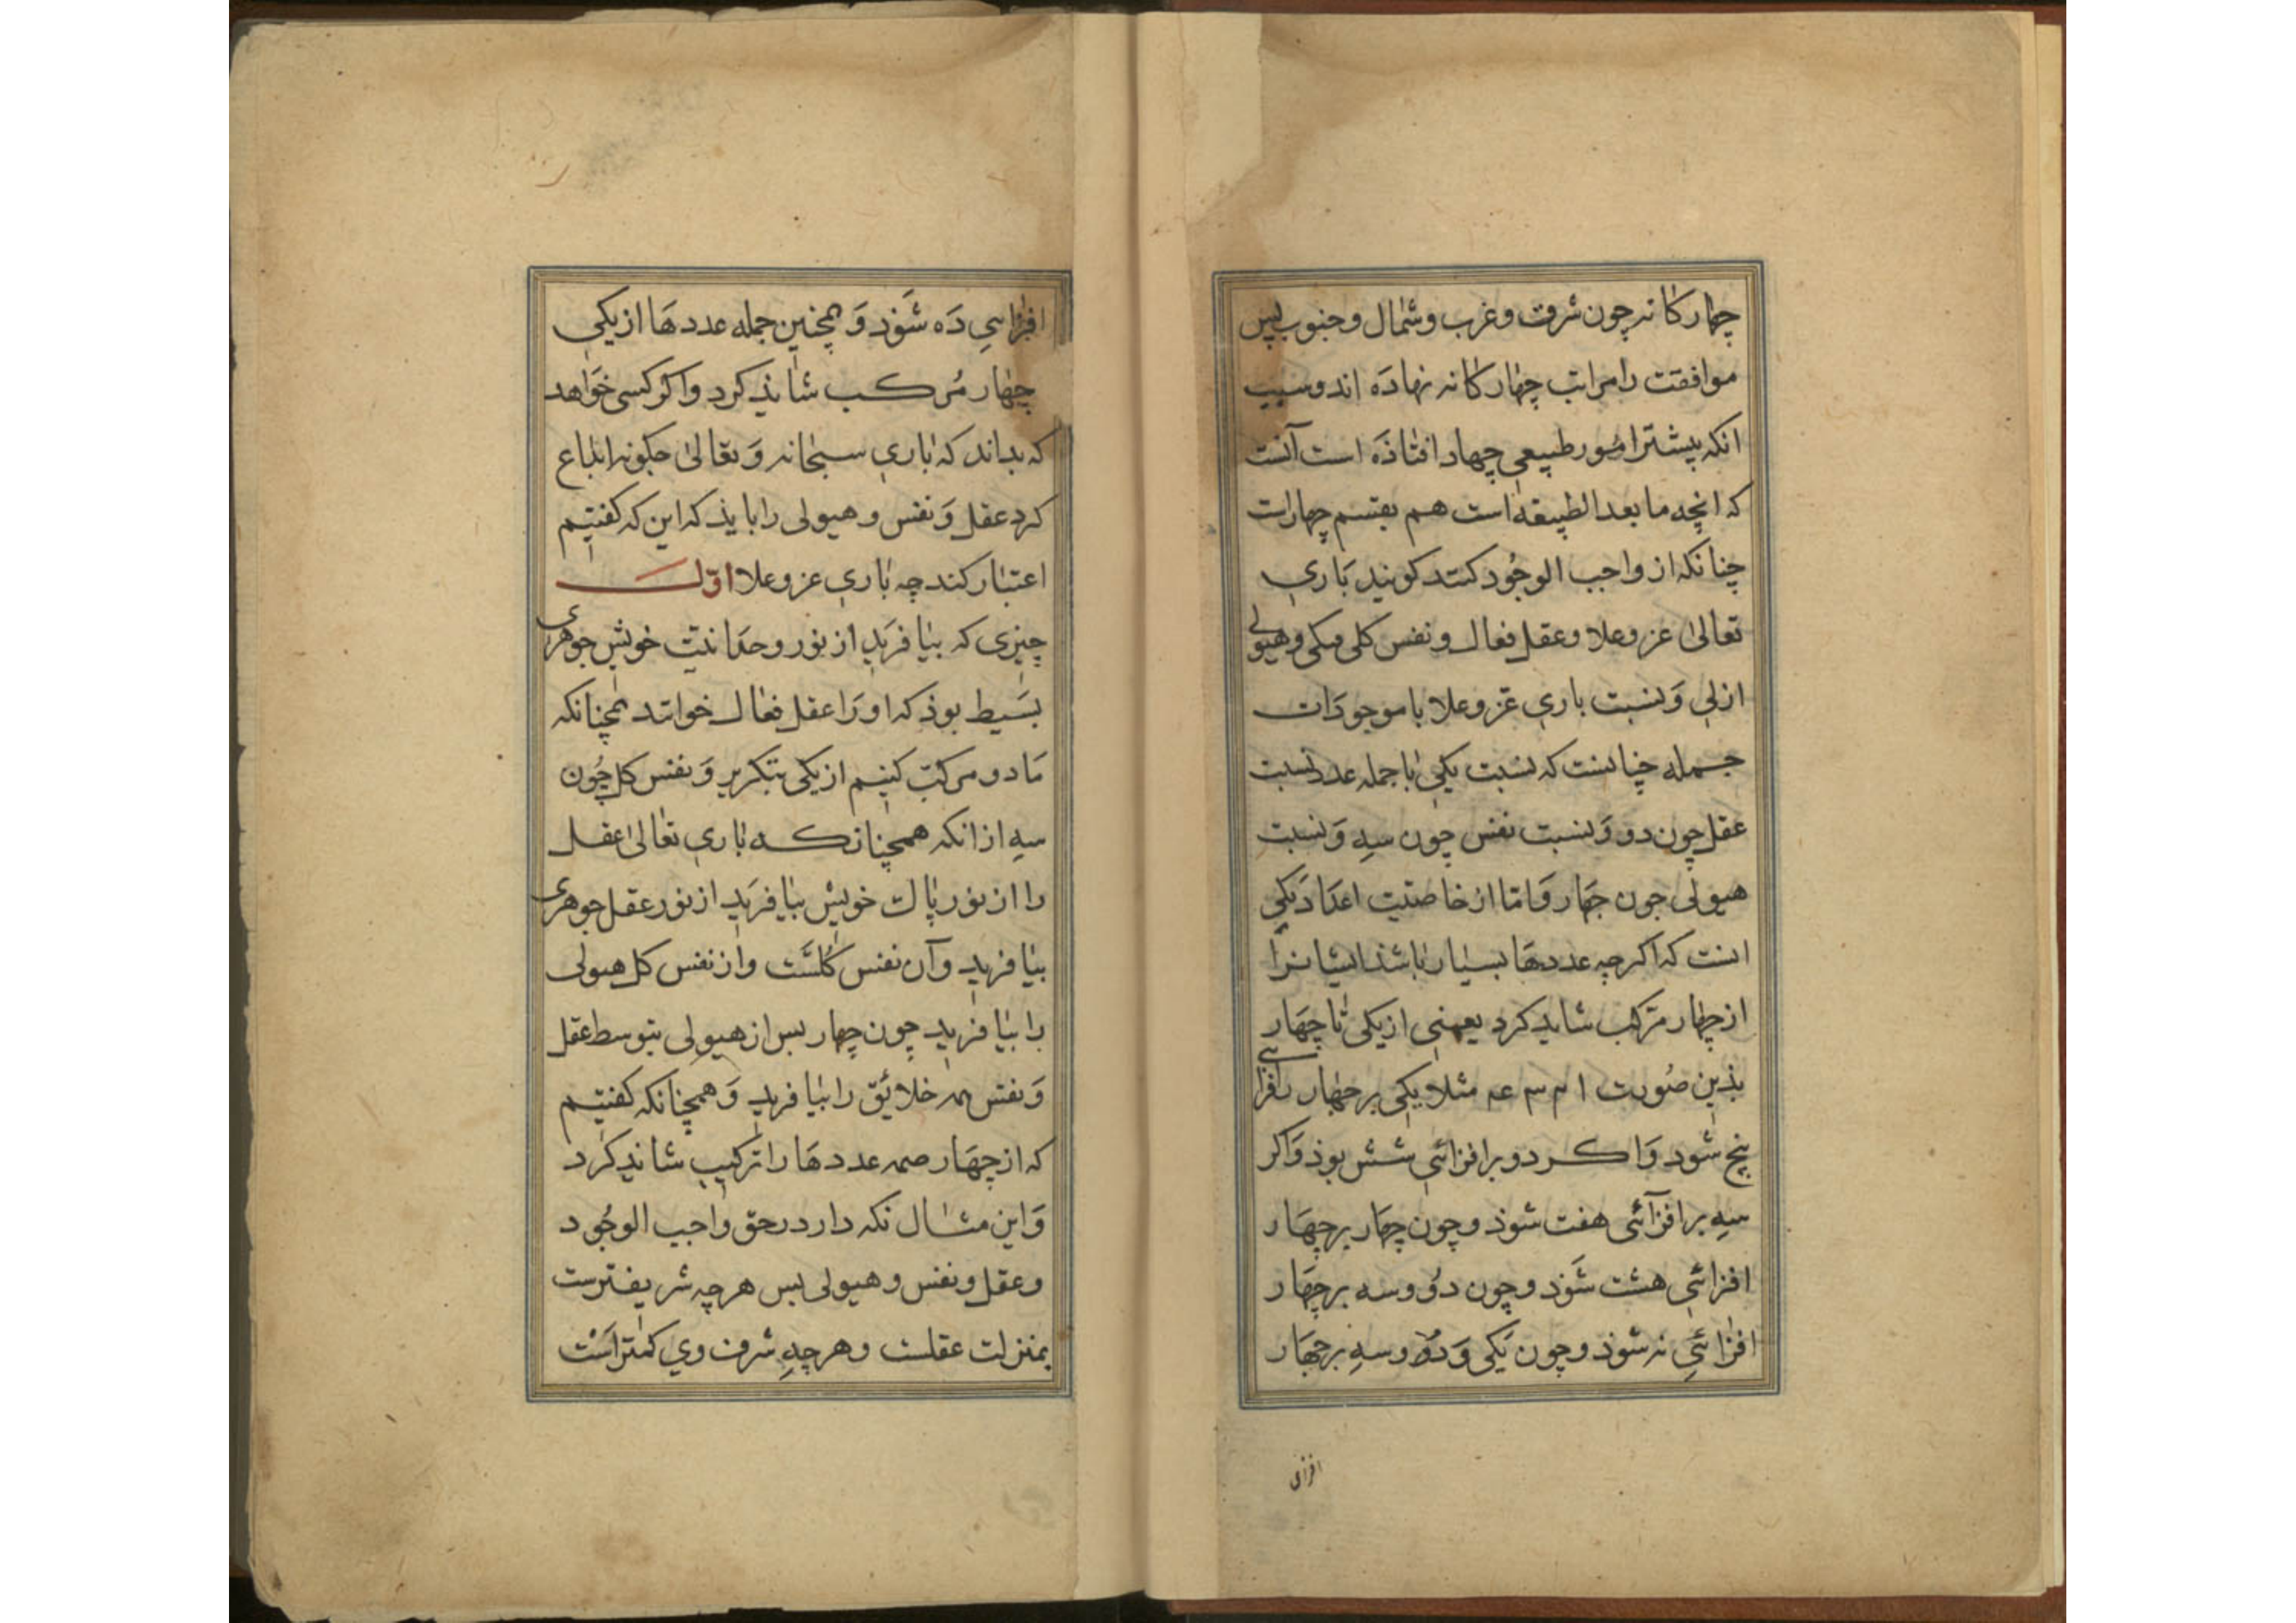 چهار کانه چون شرق و غرب و شمال و جنوب پس
موافقت را مراتب چهار کانه نهاده اند و سبب
انکه پیشتر امور طبیعی چهار افتاذه است آنست
که انچه ما بعد الطبیعه است هم بقسم چهار است
چنانکه از واجب الوجود کنند کویند باری
تعالی عز و علا و عقل فعال و نفس کلی و هیولی
ازلی و نسبت باری عز و علا با موجودات
جمله چنانست که نسبت یکی با جمله عدد نسبت
عقل چون دو و نسبت نفس چون سه و نسبت
هیولی جون چهار و اما از خاصیت اعداد یکی
انست که اکر چه عددها بسیار باشذ ایشانرا
از چهار مرکب شاید کرد یعنی از یکی تا چهار
بذین صورت ۱ ۲ ۳ ۴ مثلا یکی بر چهار افزائی
پنج شود و اکر دو بر افزائی شش بوذ و اکر
سه بر افزائی هفت شوذ و چون چهار بر چهار
افزائی هشت شوذ و چون دو و سه بر چهار
افزائی نه شوذ و چون یکی و دو و سه بر چهار
افزائی
افزائی ده شوذ و همچنین جمله عددها از یکی
چهار مرکب شایذ کرد و اکر کسی خواهد
که بداند که باری سبحانه و تعالی چکونه ابداع
کرد عقل و نفس و هیولی را بایذ که این که کفتیم
اعتبار کند چه باری عز و علا اول
چیزی که بیافرید از نور وحدانیت خویش جوهری
بسیط بوذ که او را عقل فعال خوانند همچنانکه
ما دو مرکب کنیم از یکی بتکریر و نفس کل چون
سه از انکه همچنانکه باری تعالی عقل
را از نور پاک خویش بیافرید از نور عقل جوهری
بیافرید و آن نفس کلست و از نفس کل هیولی
را بیافرید چون چهار بس از هیولی بتوسط عقل
و نفس همه خلائق را بیافرید و همچنانکه کفتیم
که از چهار همه عددها را ترکیب شاید کرد
و این مثال نکه دارد در حق واجب الوجود
و عقل و نفس و هیولی بس هرچه شریفترست
بمنزلت عقلست و هرچه شرف وی کمتر است